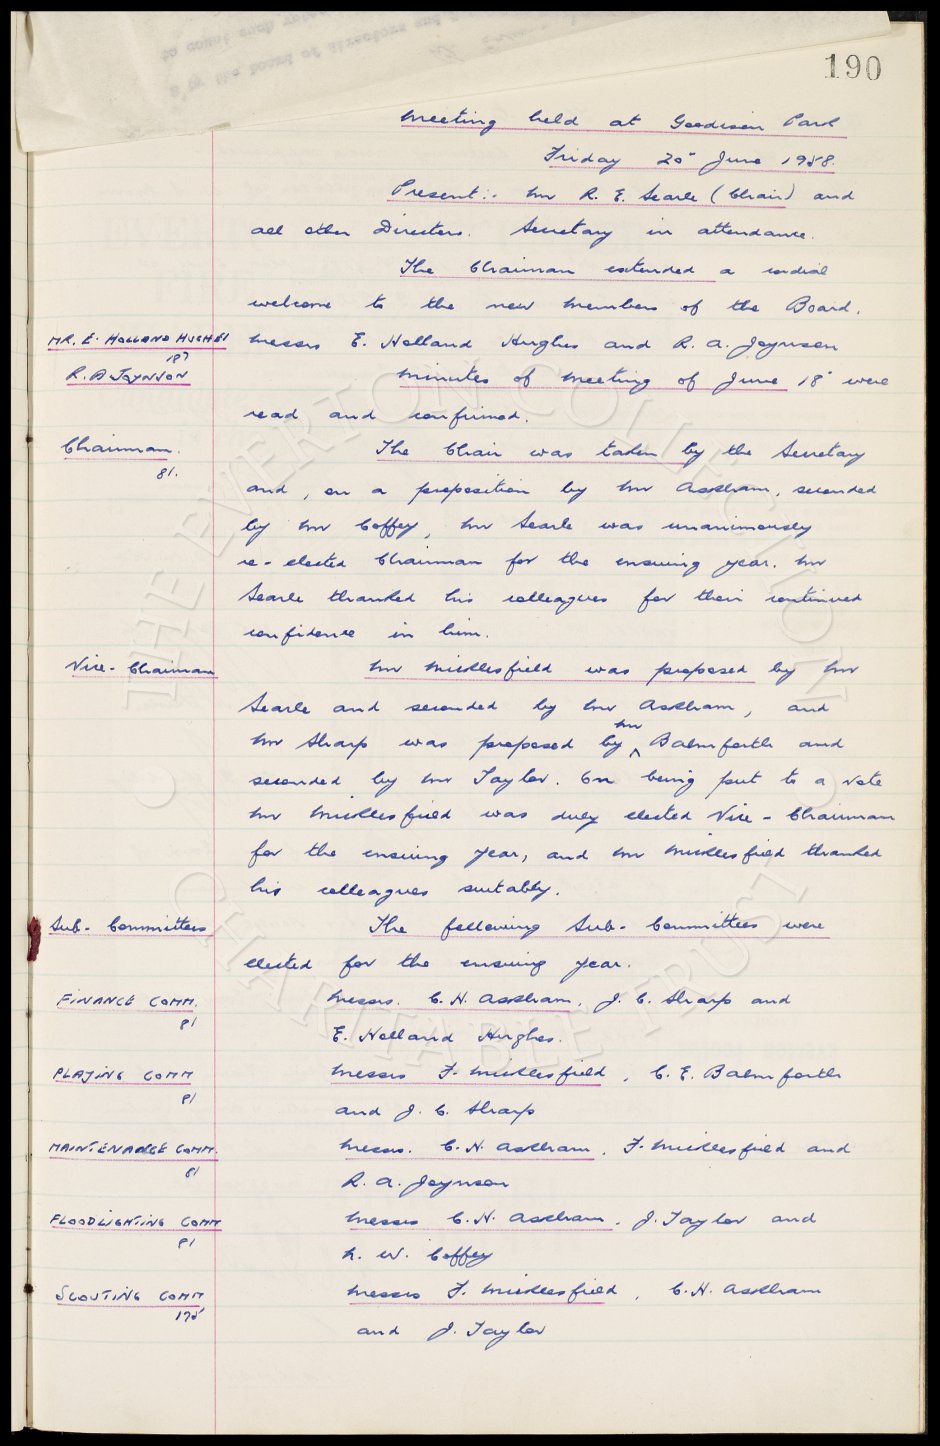 190
Meeting held at Goodison Park
Friday 20" June 1958.
Present:- Mr R. E. Searle (Chair) and
all other Directors. Secretary in attendance.
The Chairman extended a cordial
welcome to the new members of the Board.
MR. E. HOLLAND HUGHES Messrs E. Holland Hughes and R. A. Joynson
187
R. A JOYNSON Minutes of Meeting of June 18" were
read and confirmed.
Chairman. The Chair was taken by the Secretary
81.
and, on a proposition by Mr Askham, seconded
by Mr Coffey, Mr Searle was unanimously
re-elected Chairman for the ensuing year. Mr
Searle thanked his colleagues for their continued
confidence in him.
Vice-Chairman Mr Micklesfield was proposed by Mr
Searle and seconded by Mr Askham, and
Mr Sharp was proposed by Mr Balmforth and
seconded by Mr Taylor. On being put to a vote
Mr Micklesfield was duly elected Vice-Chairman
for the ensuing year, and Mr Micklesfield thanked
his colleagues suitably.
Sub-Committees The following Sub-Committees were
elected for the ensuing year.
FINANCE COMM. Messrs. C. H. Askham, J. C. Sharp and
81
E. Holland Hughes.
PLAYING COMM Messrs F. Micklesfield, C. E. Balmforth
81
and J. C. Sharp
MAINTENANCE COMM. Messrs. C. H. Askham, F. Micklesfield and
81
R. A. Joynson
FLOODLIGHTING COMM Messrs C. H. Askham, J. Taylor and
81
N. W. Coffey
SCOUTING COMM Messrs F. Micklesfield, C. H. Askham
175
and J. Taylor
© THE EVERTON COLLECTION ©
CHARITABLE TRUST